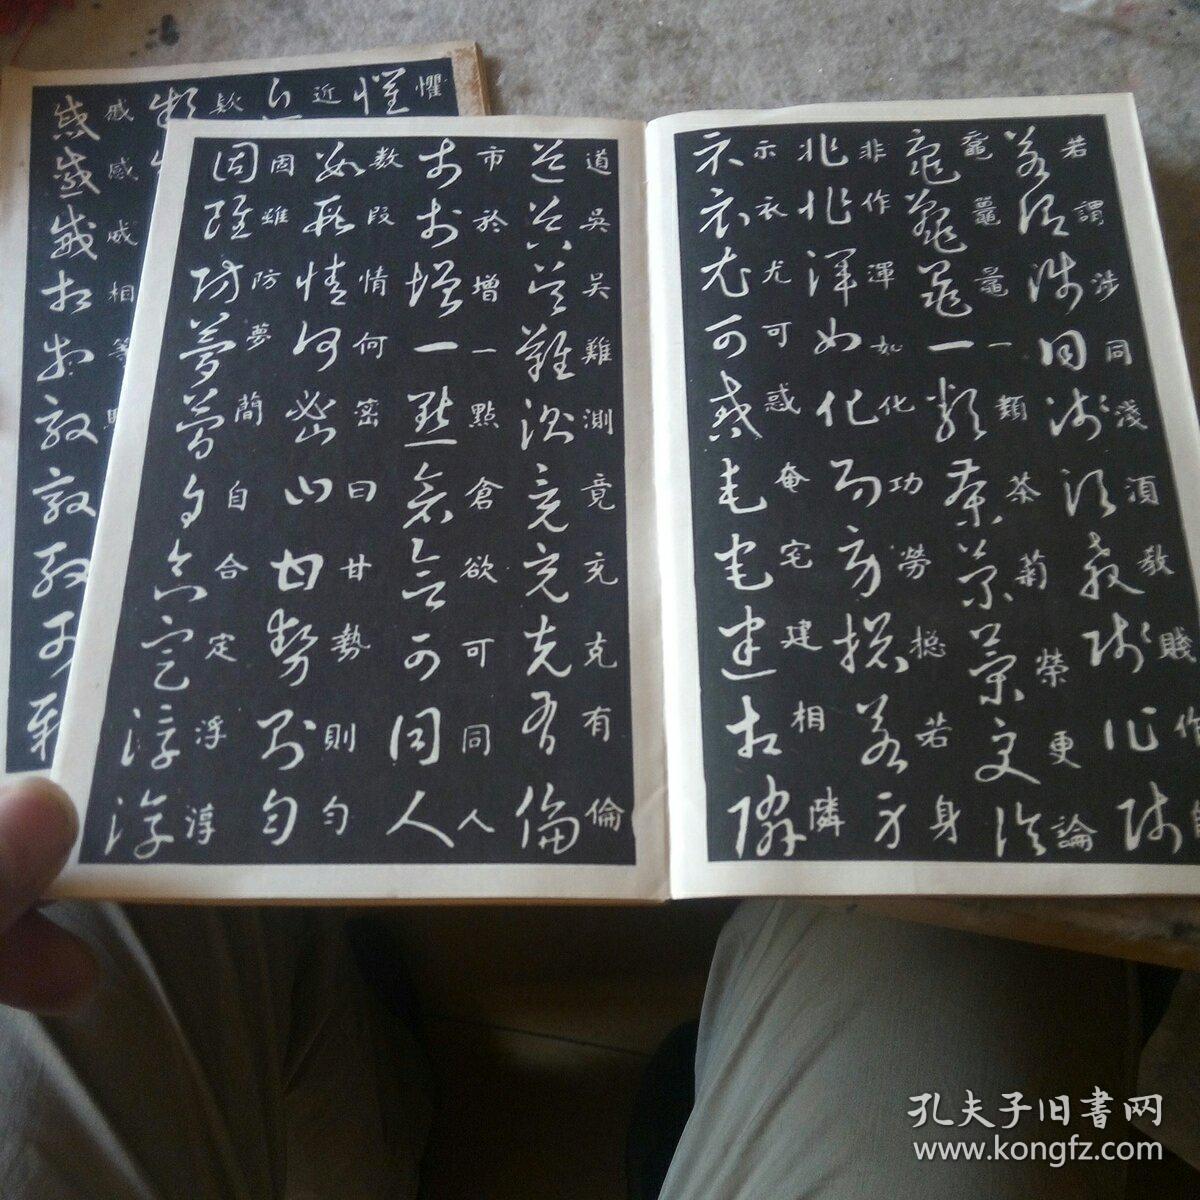 若謂涉同淺須教賤作
一類茶菊榮更論
非作渾如化功勞搃若身
示衣尤可惑奄宅建相隣
道吳吳難測竟充克有倫
市於增一點倉欲可同人
数段情何密曰甘勢則勻
固雖防夢蕳自合定浮淳
懼
近
欵
戚感威相等
孔夫子旧書网
www.kongfz.com